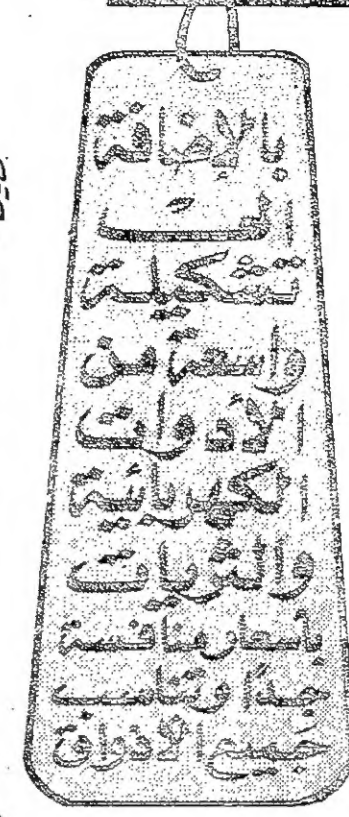 بالإضافة
إلى
تشكيلة
واسعة من
الأدوات
الكهربائية
والثريات
بأسعار منافسة
جداً وتناسب
جميع الأذواق